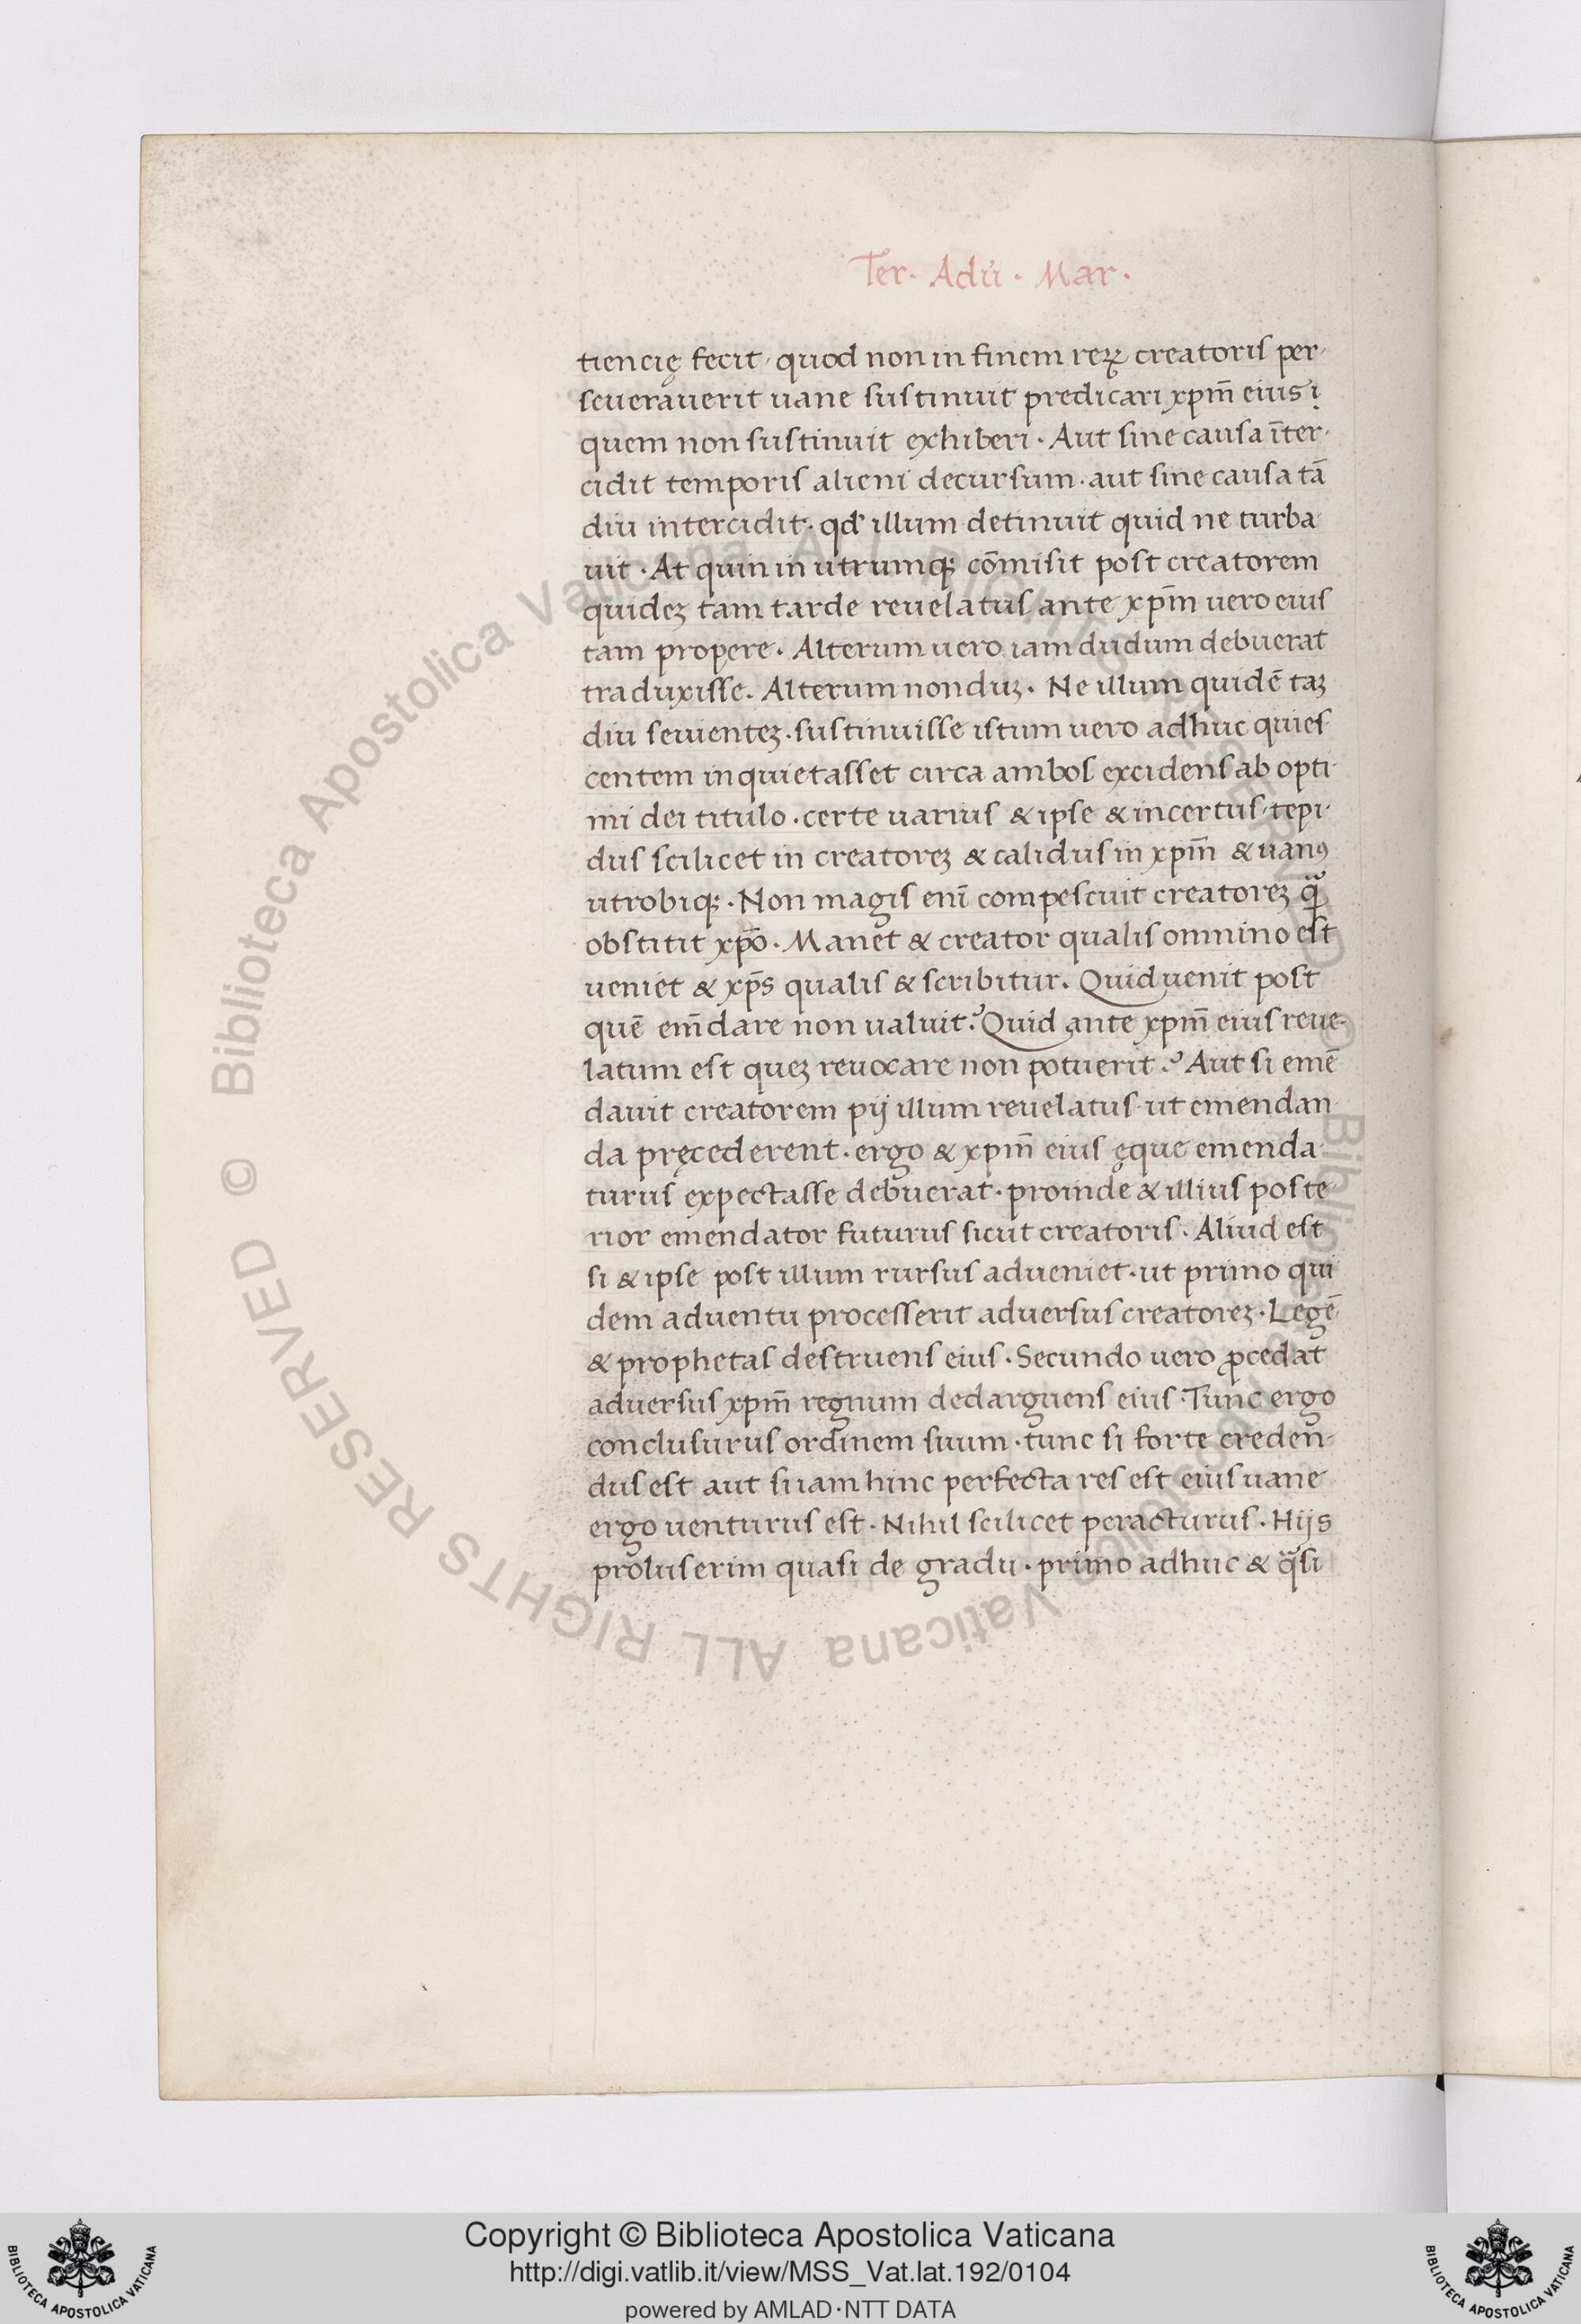 Ter. Adũ. Mar.
tiencię fecit, quod non in finem reꝝ creatoris per-
seuerauerit uane sustinuit predicari xpm̄ eius
quem non sustinuit exhiberi. Aut sine causa īter-
cidit temporis alieni decursum. aut sine causa tā
diu intercidit. qđ illum detinuit quid ne turba-
uit. At quin in utrumqꝫ cōmisit post creatorem
quideꝫ tam tarde reuelatus ante xpm̄ uero eius
tam propere. Alterum uero iam dudum debuerat
traduxisse. Alterum nonduꝫ. Ne illum quidē taꝫ
diu seuienteꝫ. sustinuisse istum uero adhuc quies
centem inquietasset circa ambos excidens ab opti-
mi dei titulo. certe uarius & ipse & incertus, tepi-
dus scilicet in creatoreꝫ & calidus in xpm̄ & uanꝰ
utrobiqꝫ. Non magis enī compescuit creatoreꝫ qᷓ
obstitit xp̄o. Manet & creator qualis omnino est
ueniet & xp̄s qualis & scribitur. Quid uenit post
quē em̄dare non ualuit? Quid ante xpm̄ eius reue-
latum est queꝫ reuocare non potuerit? Aut si emē
dauit creatorem pij illum reuelatus ut emendan-
da pręcederent. ergo & xpm̄ eius ęque emenda-
turus expectasse debuerat. proinde & illius poste-
rior emendator futurus sicut creatoris. Aliud est
si & ipse post illum rursus adueniet. ut primo qui
dem aduentu processerit aduersus creatoreꝫ. Legē
& prophetas destruens eius. Secundo uero ꝓcedat
aduersus xpm̄ regnum dedarguens eius. Tunc ergo
conclusurus ordinem suum. tunc si forte creden-
dus est aut si iam hinc perfecta res est eius uane
ergo uenturus est. Nihil scilicet peracturus. Hijs
proluserim quasi de gradu. primo adhuc & qᷓsi
© Biblioteca Apostolica Vaticana ALL RIGHTS RESERVED © Biblioteca Apostolica Vaticana ALL RIGHTS RESERVED
Copyright © Biblioteca Apostolica Vaticana
http://digi.vatlib.it/view/MSS_Vat.lat.192/0104
powered by AMLAD·NTT DATA
BIBLIOTECA APOSTOLICA VATICANA
BIBLIOTECA APOSTOLICA VATICANA